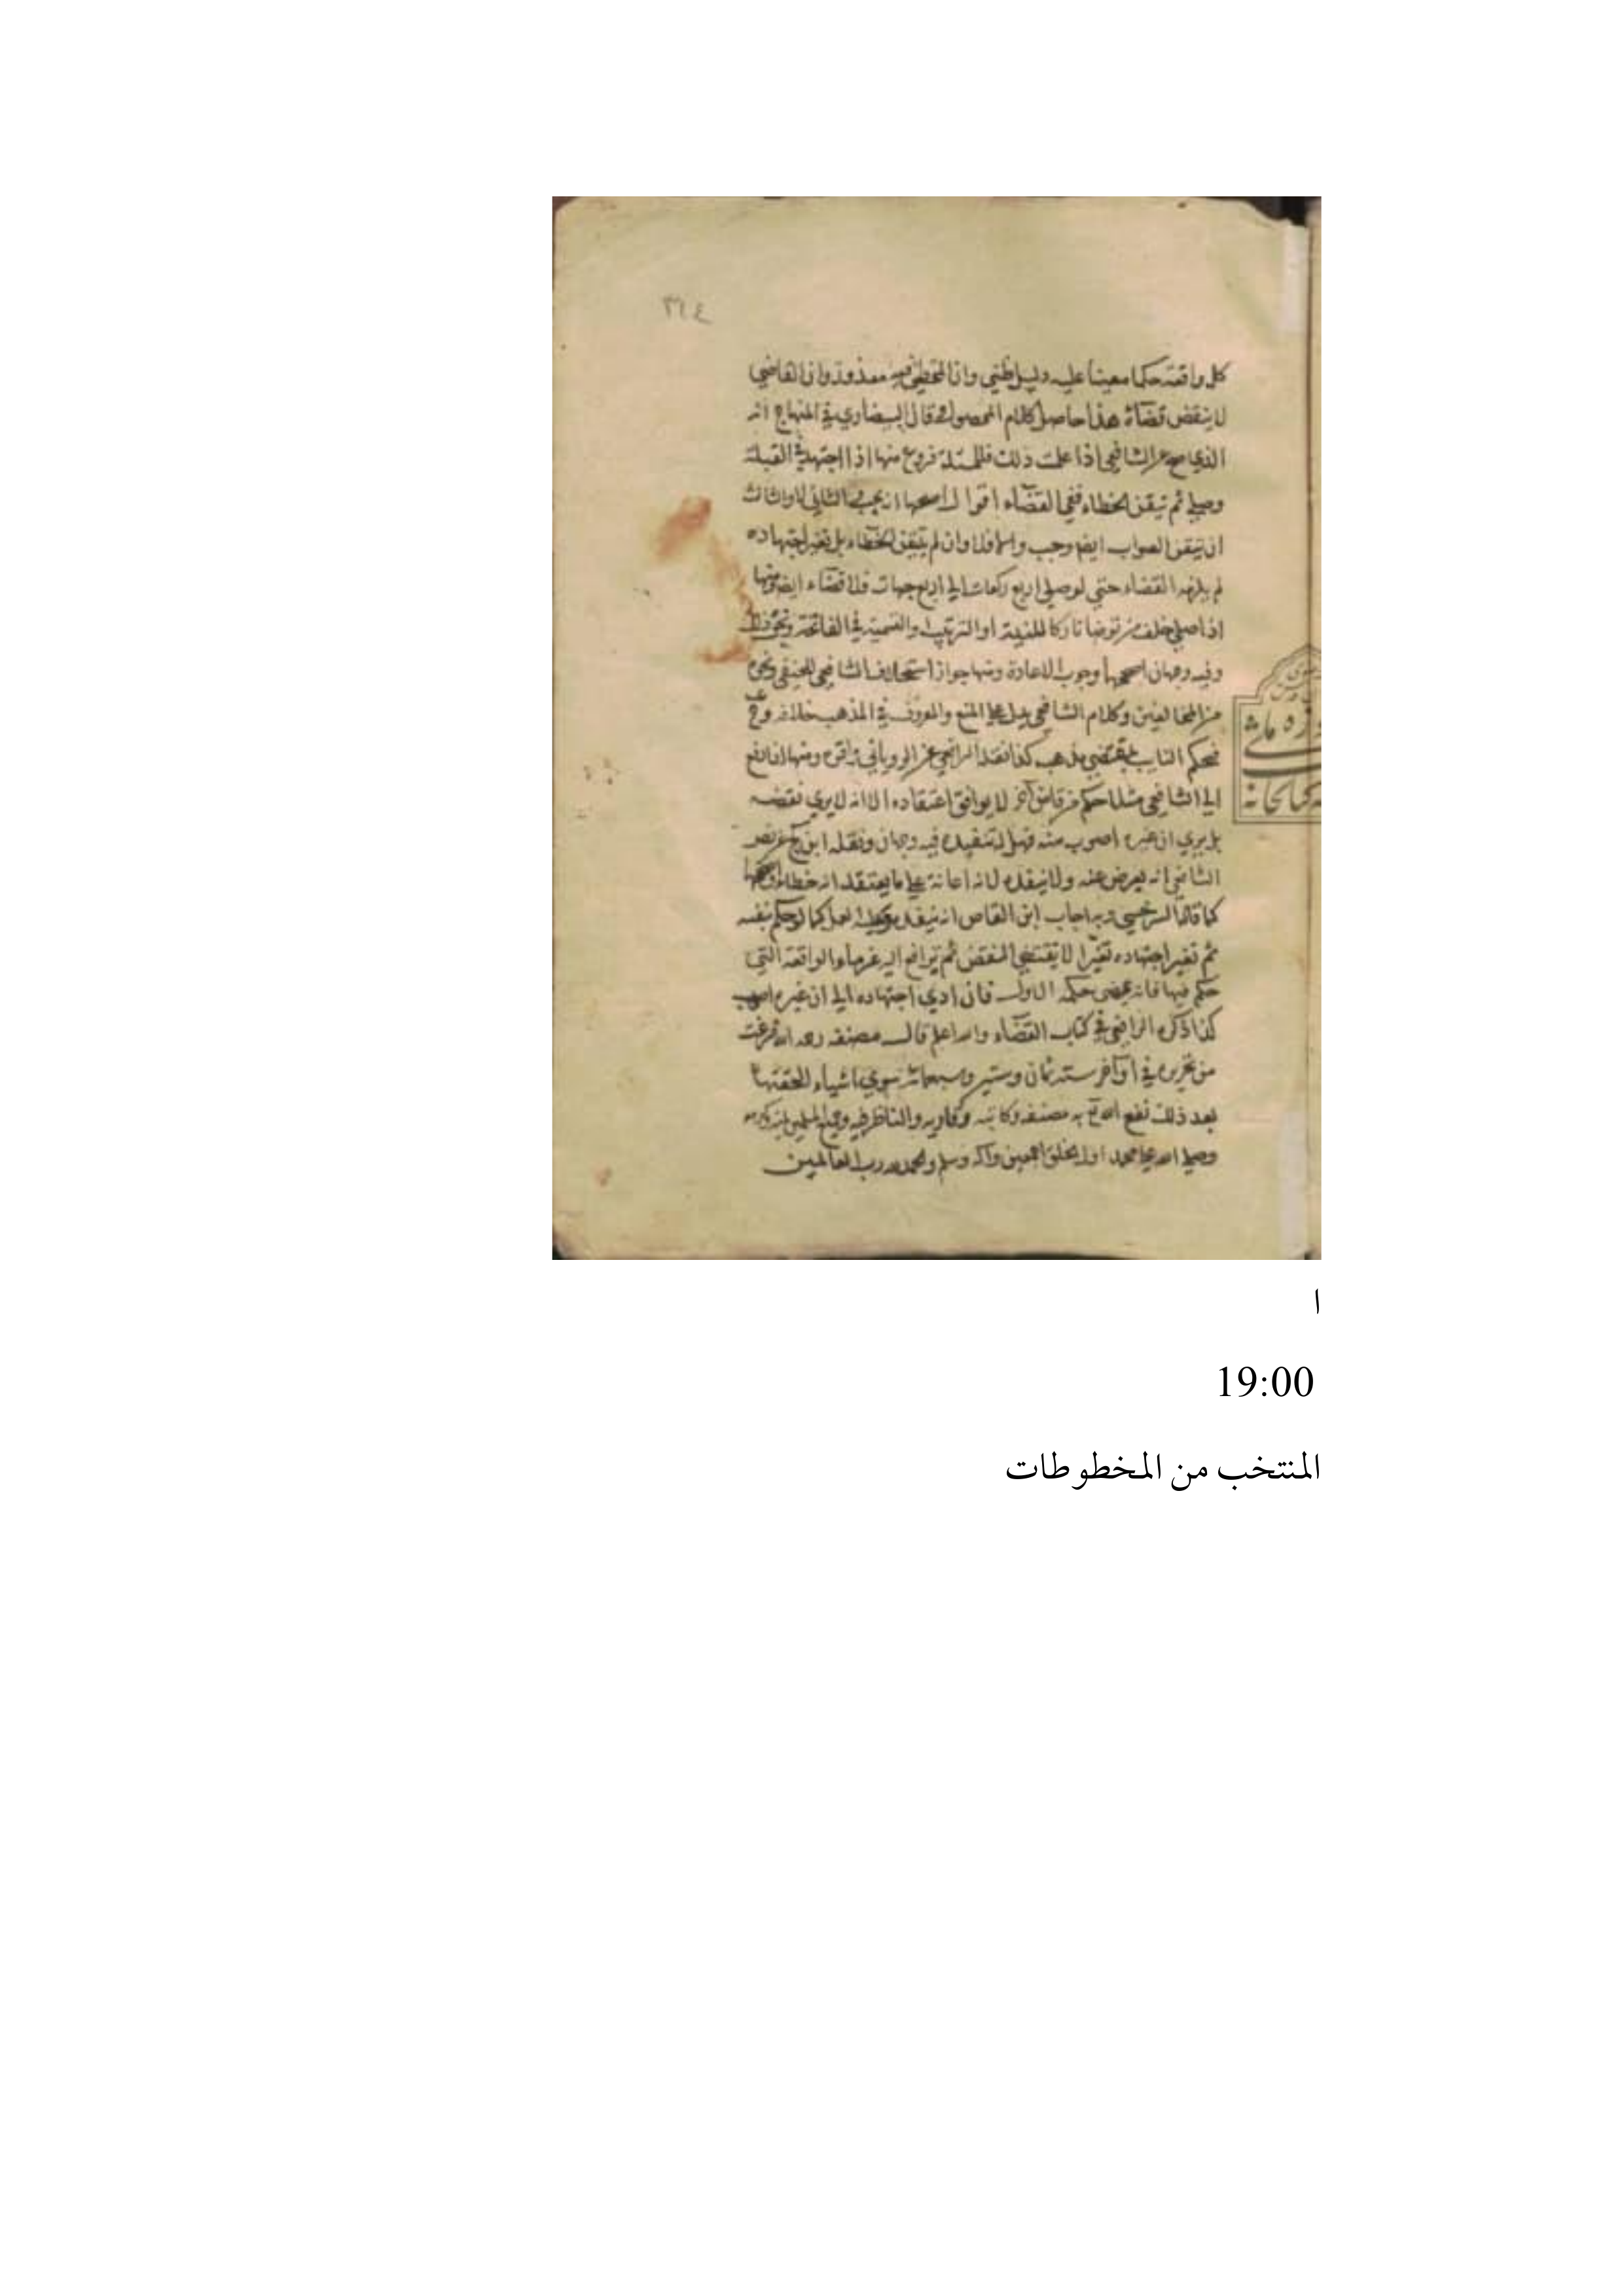 ٣١٤
كل واقعة حكما معينا عليه دليل ظني وان المخطئ فيه معذور وان القاضي
لا ينقض قضاؤه هذا حاصل كلام المحصول قال البيضاوي في المنهاج انه
الذي صح عن الشافعي اذا علمت ذلك فللمسئلة فروع منها اذا اجتهد في القبلة
وصلي ثم تيقن الخطاء ففي القضاء اقوال اصحها انه يجب والثاني لا والثالث
ان تيقن الصواب ايضا وجب والا فلا وان لم يتيقن الخطاء بل تغير اجتهاده
لم يلزمه القضاء حتي لو صلي اربع ركعات الي اربع جهات فلا قضاء ايضا ومنها
اذا صلي خلف من توضا تاركا للنية او الترتيب او التسمية في الفاتحة ونحو ذلك
وفيه وجهان اصحهما وجوب الاعادة ومنها جواز استخلاف الشافعي للحنفي ونحوه
من المخالفين وكلام الشافعي يدل علي المنع والمعروف في المذهب خلافه
فيحكم النايب بمقتضي مذهبه كذا نقله الرافعي عن الروياني واقره ومنها اذا رفع
الي الشافعي مثلا حكم من قاض آخر لا يوافق اعتقاده الا انه لا يري نقضه
بل يري ان غيره اصوب منه فهل له تنفيذه فيه وجهان ونقله ابن كج عن نص
الشافعي انه يعرض عنه ولا ينفذه لانه اعانة علي ما يعتقد انه خطاء واصحهما
كما قاله السرخسي وبه اجاب ابن القاص انه ينفذه كما لو حكم بنفسه
ثم تغير اجتهاده تغيرا لا يقتضي النقض ثم ترافع اليه غرماء الواقعة التي
حكم فيها فانه يمضي حكمه الاول فان ادي اجتهاده الي ان غيره اصوب
كذا ذكره الرافعي في كتاب القضاء والله اعلم قال مصنفه رحمه الله فرغت
من تحريره في اواخر سنة ثمان وستين وسبعمائة سوي اشياء الحقتها
بعد ذلك نفع الله به مصنفه وكاتبه وقاريه والناظر فيه وجميع المسلمين بمنه وكرمه
وصلي الله علي محمد الخلق اجمعين وآله وسلم والحمد لله رب العالمين
ا
19:00
المنتخب من المخطوطات